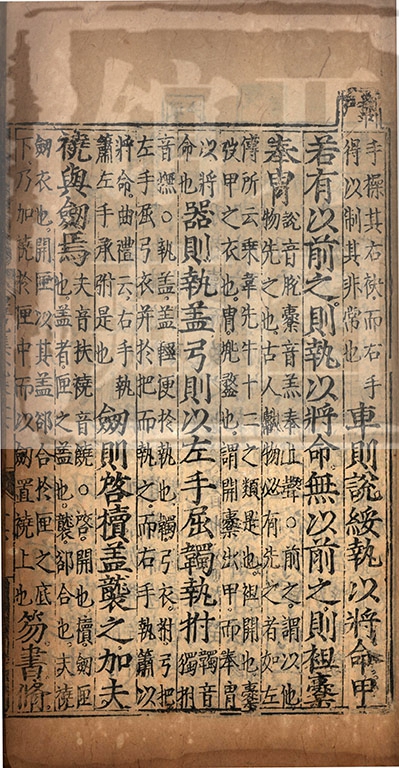 手操其右袂而右手
得以制其非常也
車則說綏執以將命甲
若有以前之則執以將命無以前之則袒櫜
奉冑
說音脫櫜音羔奉上聲○前之謂以他
物先之也古人獻物必有先之者如左
傳所云乗韋先牛十二之類是也袒開也櫜
弢甲之衣也冑兠鍪也謂開櫜出甲而奉冑
以將
命也
器則執蓋弓則以左手屈韣執拊
韣音
獨拊
音撫○執蓋蓋輕便於執也韣弓衣拊弓把
左手屈弓衣并於把而執之而右手執簫以
將命曲禮云右手執
簫左手承拊是也
劒則啓櫝蓋襲之加夫
襓與劒焉
夫音扶襓音饒○啓開也櫝劒匣
也蓋者匣之蓋也襲郤合也夫襓
劒衣也開匣以其蓋郤合於匣之底
下乃加襓於匣中而以劒置襓上也
笏書脩